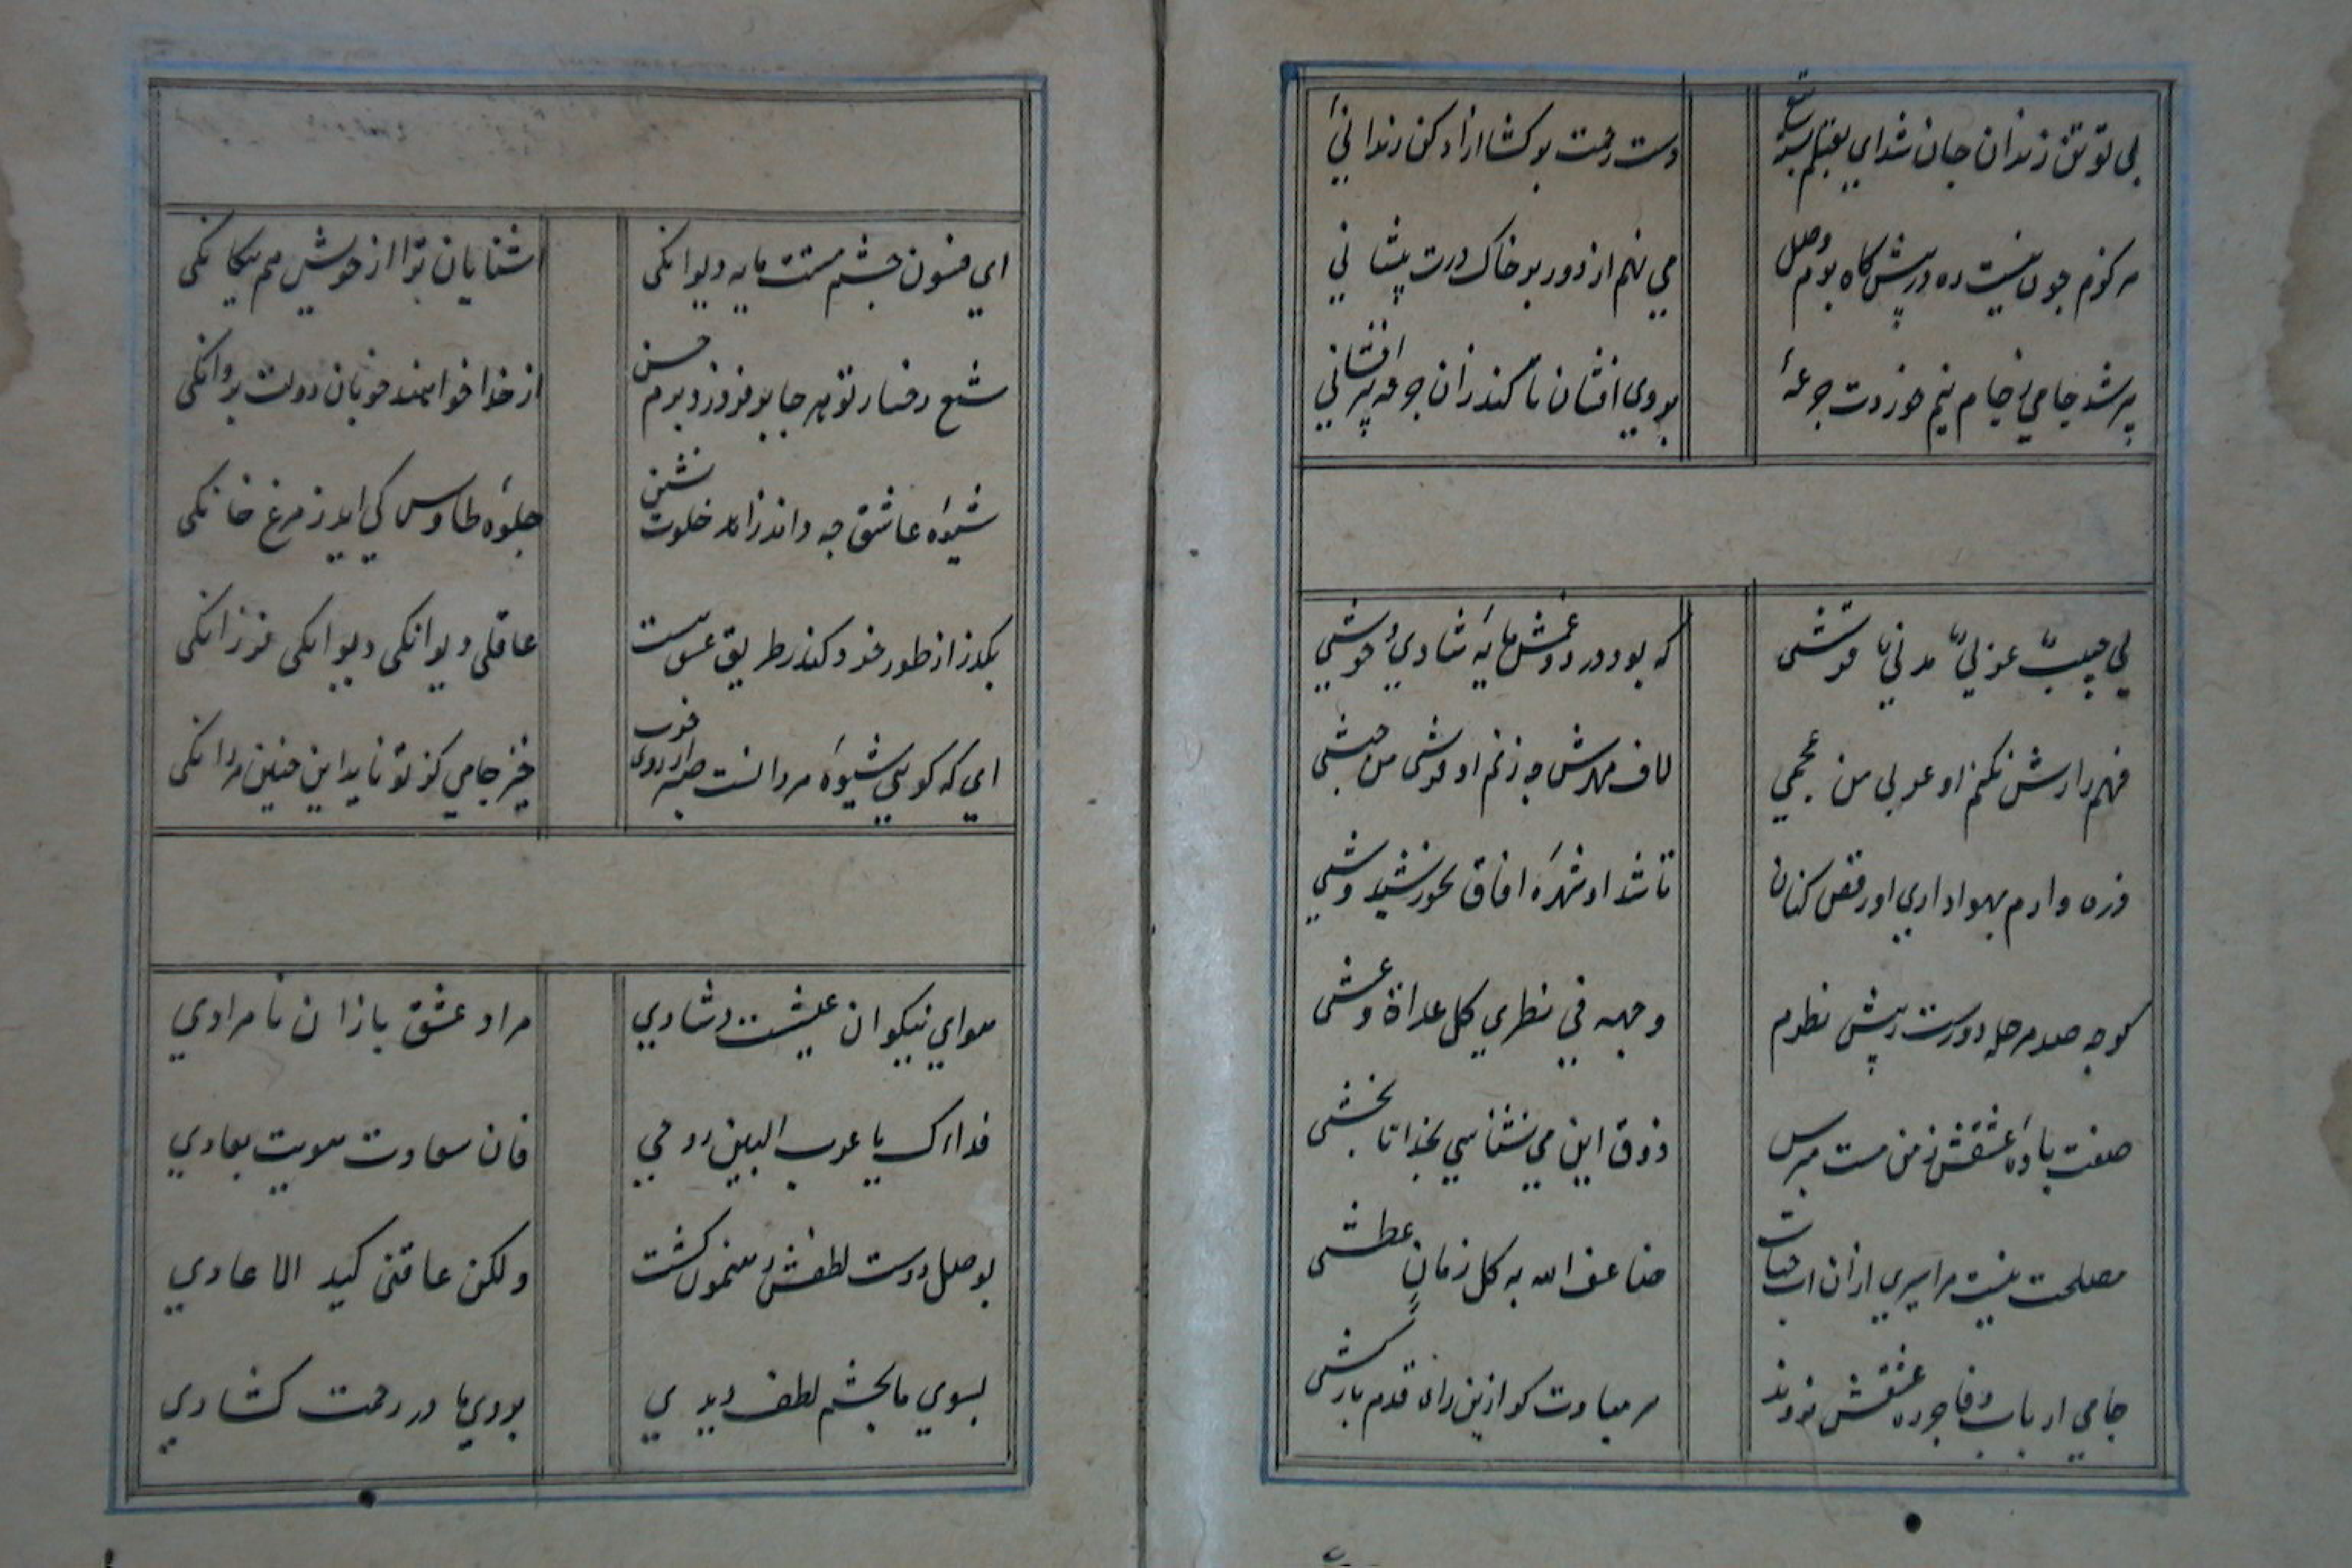 بی تو تن زندان جان شد ای بقتلم بسته تیغ
دست رحمت بر کشا ازاد کن زندانی
هر کزم چون نیست ره در پیشگاه بزم وصل
می نهم از دور بر خاک درت پیشانی
پر شد جامی ز جام نیم خوردت جرعهٔ
بر وی افشان تا کند زان جرعه پر افشانی
لی حبیبٌ عربیٌ مدنیٌ قرشی
که بود درد و غمش مایهٔ شادی و خوشی
فهم رازش نکنم او عربی من عجمی
لاف مهرش چه زنم او قرشی من حبشی
ذره وارم بهواداری او رقص کنان
تا شد او شهرهٔ افاق بخورشید وشی
کرچه صد مرحله دورست ز پیش نظرم
وجهه فی نظری کل غداة و عشی
صفت بادهٔ عشقش ز من مست مپرس
ذوق این می نشناسی بخدا تا نچشی
مصلحت نیست مرا سیری ازان اب حیات
ضاعف الله به کل زمانٍ عطشی
جامی ارباب وفا جز ره عشقش نروند
سر مبادت کر ازین راه قدم باز کشی
ای فسون چشم مستت مایه دیوانکی
اشنایان ترا از خویش هم بیکانکی
شمع رخسار تو هر جا بر فروزد بزم حسن
از خدا خواهند خوبان دولت پروانکی
شیوهٔ عاشق چه داند زاهد خلوت نشین
جلوهٔ طاوس کی اید ز مرغ خانکی
بکذر از طور خرد کندر طریق عشق هست
عاقلی دیوانکی دیوانکی فرزانکی
ای که کویی شیوهٔ مردانست صبر از روی خوب
خیز جامی کز تو ناید این چنین مردانکی
هوای نیکوان عیشست و شادی
مراد عشق بازان نامرادی
فداک یا غراب البین روحی
فان سعادت هویت بعادی
بوصل دوست لطفش رهنمون کشت
ولکن عاقنی کید الاعادی
بسوی ما بچشم لطف دیدی
بروی ما در رحمت کشادی